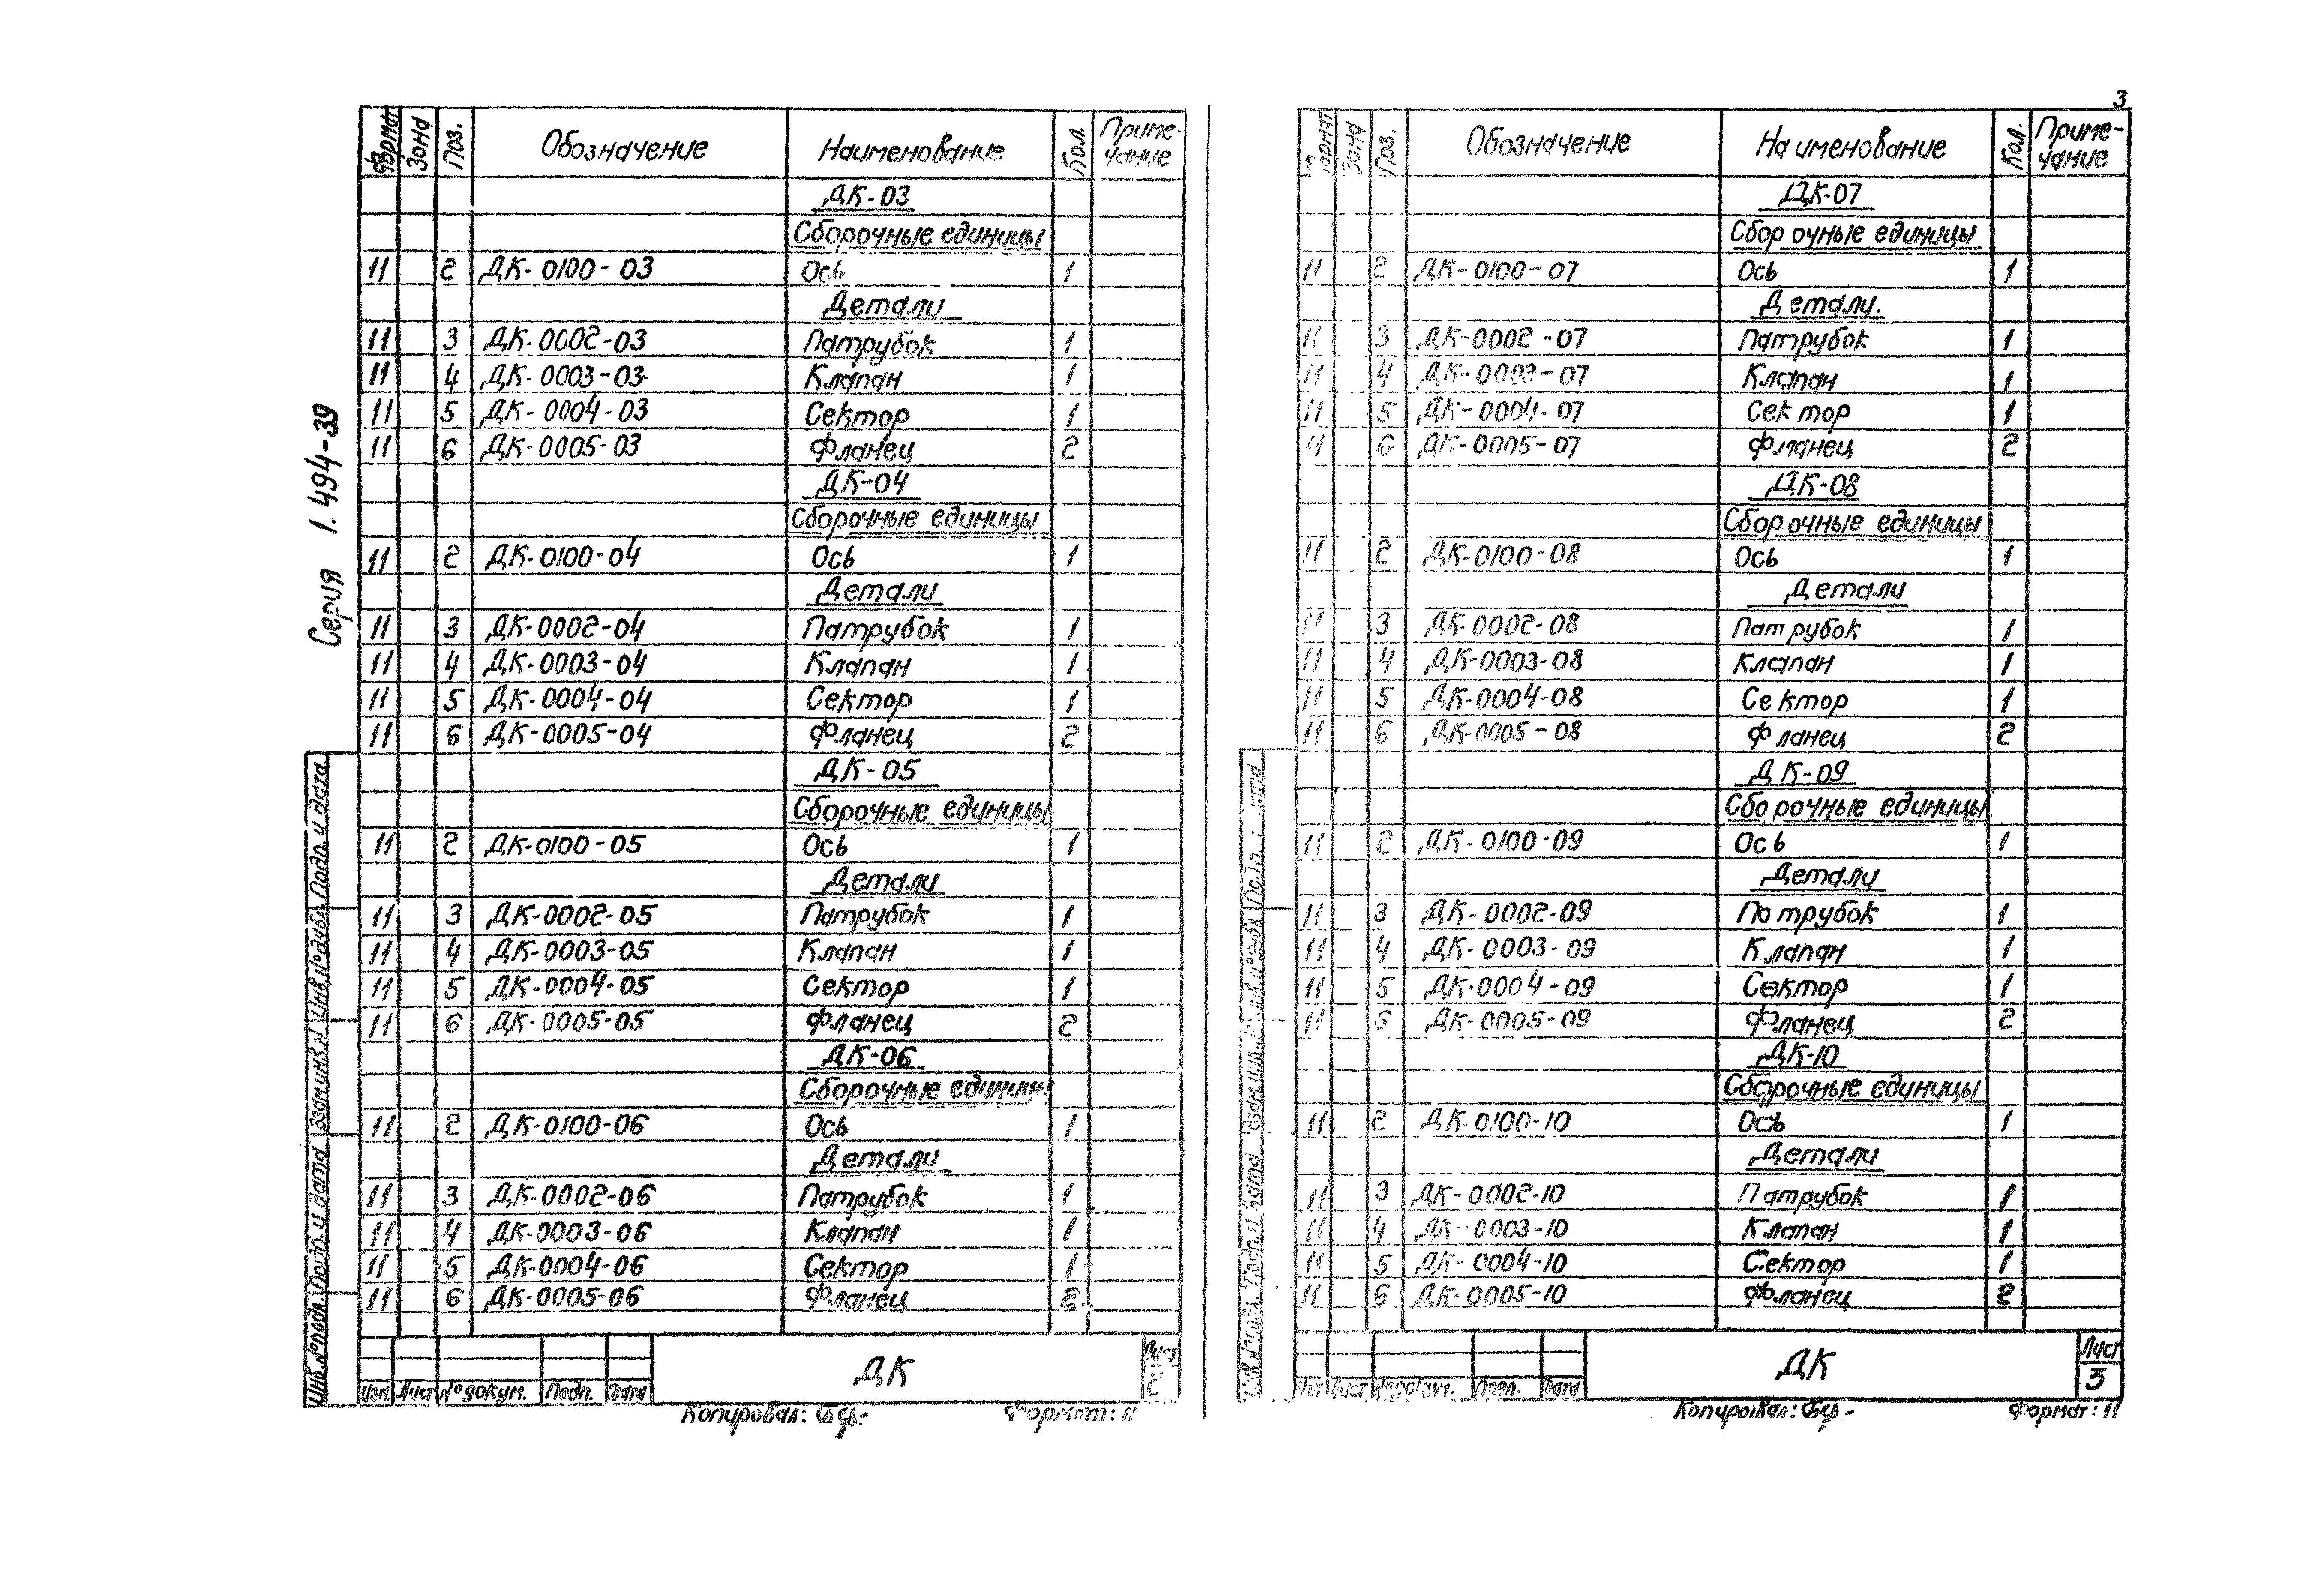 3
Серия 1.494-39
Формат Зона Поз. Обозначение Наименование Кол. Приме-чание
ДК-03
Сборочные единицы
11 2 ДК-0100-03 Ось 1
Детали
11 3 ДК-0002-03 Патрубок 1
11 4 ДК-0003-03 Клапан 1
11 5 ДК-0004-03 Сектор 1
11 6 ДК-0005-03 Фланец 2
ДК-04
Сборочные единицы
11 2 ДК-0100-04 Ось 1
Детали
11 3 ДК-0002-04 Патрубок 1
11 4 ДК-0003-04 Клапан 1
11 5 ДК-0004-04 Сектор 1
11 6 ДК-0005-04 Фланец 2
ДК-05
Сборочные единицы
11 2 ДК-0100-05 Ось 1
Детали
11 3 ДК-0002-05 Патрубок 1
11 4 ДК-0003-05 Клапан 1
11 5 ДК-0004-05 Сектор 1
11 6 ДК-0005-05 Фланец 2
ДК-06
Сборочные единицы
11 2 ДК-0100-06 Ось 1
Детали
11 3 ДК-0002-06 Патрубок 1
11 4 ДК-0003-06 Клапан 1
11 5 ДК-0004-06 Сектор 1
11 6 ДК-0005-06 Фланец 2
Инв.№подл. Подп. и дата Взам.инв.№ Инв.№дубл. Подп. и дата
Изм. Лист №докум. Подп. Дата
ДК
Лист
2
Копировал:
Формат: 11
Формат Зона Поз. Обозначение Наименование Кол. Приме-чание
ДК-07
Сборочные единицы
11 2 ДК-0100-07 Ось 1
Детали.
11 3 ДК-0002-07 Патрубок 1
11 4 ДК-0003-07 Клапан 1
11 5 ДК-0004-07 Сектор 1
11 6 ДК-0005-07 Фланец 2
ДК-08
Сборочные единицы
11 2 ДК-0100-08 Ось 1
Детали
11 3 ДК-0002-08 Патрубок 1
11 4 ДК-0003-08 Клапан 1
11 5 ДК-0004-08 Сектор 1
11 6 ДК-0005-08 Фланец 2
ДК-09
Сборочные единицы
11 2 ДК-0100-09 Ось 1
Детали
11 3 ДК-0002-09 Патрубок 1
11 4 ДК-0003-09 Клапан 1
11 5 ДК-0004-09 Сектор 1
11 6 ДК-0005-09 Фланец 2
ДК-10
Сборочные единицы
11 2 ДК-0100-10 Ось 1
Детали
11 3 ДК-0002-10 Патрубок 1
11 4 ДК-0003-10 Клапан 1
11 5 ДК-0004-10 Сектор 1
11 6 ДК-0005-10 Фланец 2
Подп. и дата
Лист №докум. Подп. Дата
ДК
Лист
3
Копировал:
Формат: 11